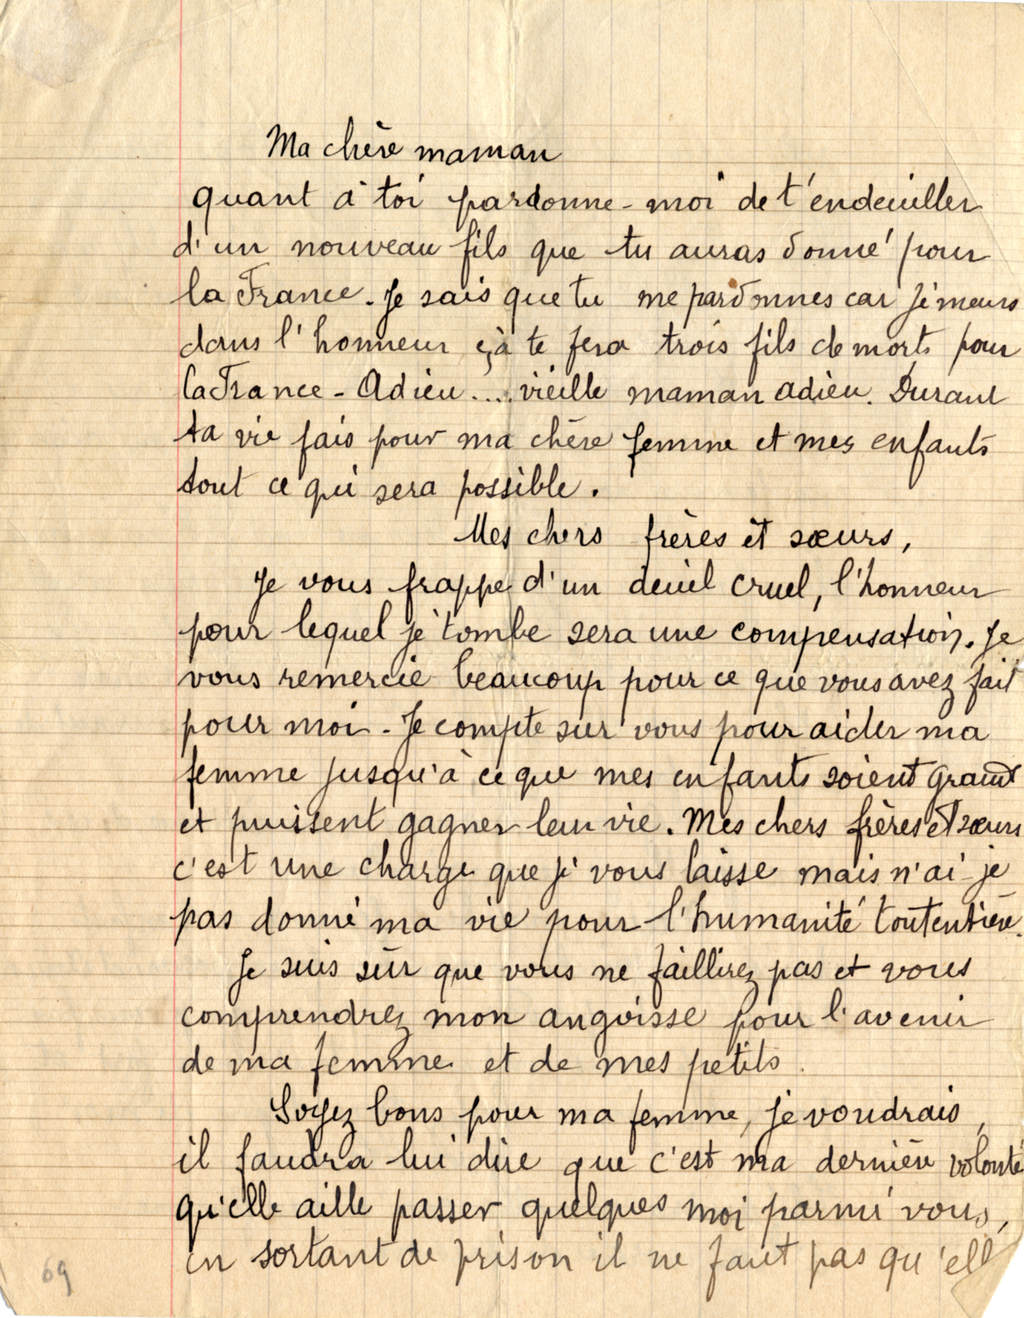 Ma chère maman
quant à toi pardonne-moi de t'endeuiller
d'un nouveau fils que tu auras donné pour
la France. Je sais que tu me pardonnes car je meurs
dans l'honneur çà te fera trois fils de morts pour
la France - Adieu.... vieille maman adieu. Durant
ta vie fais pour ma chère femme et mes enfants
tout ce qui sera possible.
Mes chers frères et sœurs,
Je vous frappe d'un deuil cruel, l'honneur
pour lequel je tombe sera une compensation. Je
vous remercie beaucoup pour ce que vous avez fait
pour moi - Je compte sur vous pour aider ma
femme jusqu'à ce que mes enfants soient grand
et puissent gagner leur vie. Mes chers frères et sœurs
c'est une charge que je vous laisse mais n'ai-je
pas donné ma vie pour l'humanité toutentière.
Je suis sûr que vous ne faillirez pas et vous
comprendrez mon angoisse pour l'avenir
de ma femme et de mes petits.
Soyez bons pour ma femme, je voudrais,
il faudra lui dire que c'est ma dernière volonté
qu'elle aille passer quelques moi parmi vous,
en sortant de prison il ne faut pas qu'ell
69